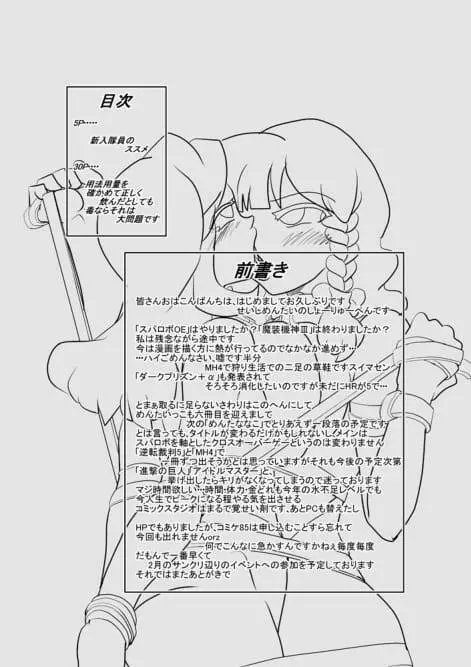 目次
5P‥‥‥
新入隊員の
ススメ
30P‥‥
用法用量を
確かめて正しく
飲んだとしても
毒ならそれは
大問題です
前書き
皆さんおはこんばんちは、はじめましてお久しぶりです
せいじめんたいのしょーりゅーへんです
「スパロボOE」はやりましたか？「魔装機神Ⅲ」は終わりましたか？
私は残念ながら途中です
今は漫画を描く方に熱が行ってるのでなかなか進めず…
…ハイごめんなさい、嘘です半分
MH4で狩り生活での二足の草鞋ですスイマセン
「ダークプリズン＋α」も発表されて
そろそろ消化したいのですが未だにHRが5で…
とまぁ取るに足らないさわりはこのへんにして
めんたいっこも六冊目を迎えまして
次の「めんたななこ」でとりあえず一段落の予定です
とは言っても、タイトルが変わるだけかもしれないし、メインは
スパロボを軸としたクロスオーバーゲーというのは変わりません
「逆転裁判5」と「MH4」で
一冊ずつ出そうかとは思っていますがそれも今後の予定次第
「進撃の巨人」「アイドルマスター」と、
挙げ出したらキリがなくなってしまうので迷っております
マジ時間欲しい…時間・体力・金どれも今年の水不足レベルでも
今人生でピークになる程やる気を出させる
コミックスタジオはまるで覚せい剤です、あとPCも替えたし
HPでもありましたが、コミケ85は申し込むことすら忘れて
今回も出れませんorz
何でこんなに急かすんですかねぇ毎度毎度
だもんで一番早くて
2月のサンクリ辺りのイベントへの参加を予定しております
それではまたあとがきで